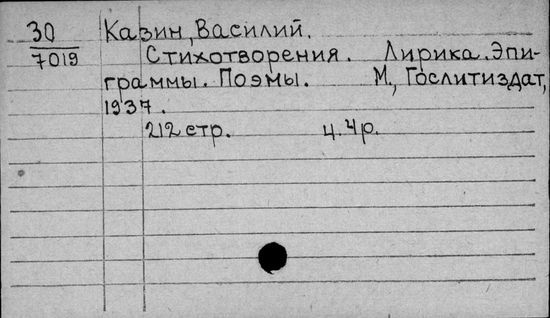 30
7019
Казин, Василий.
Стихотворения. Лирика. Эпи-
граммы. Поэмы. М., Гослитиздат,
1937.
212 стр. ц. 4 р.